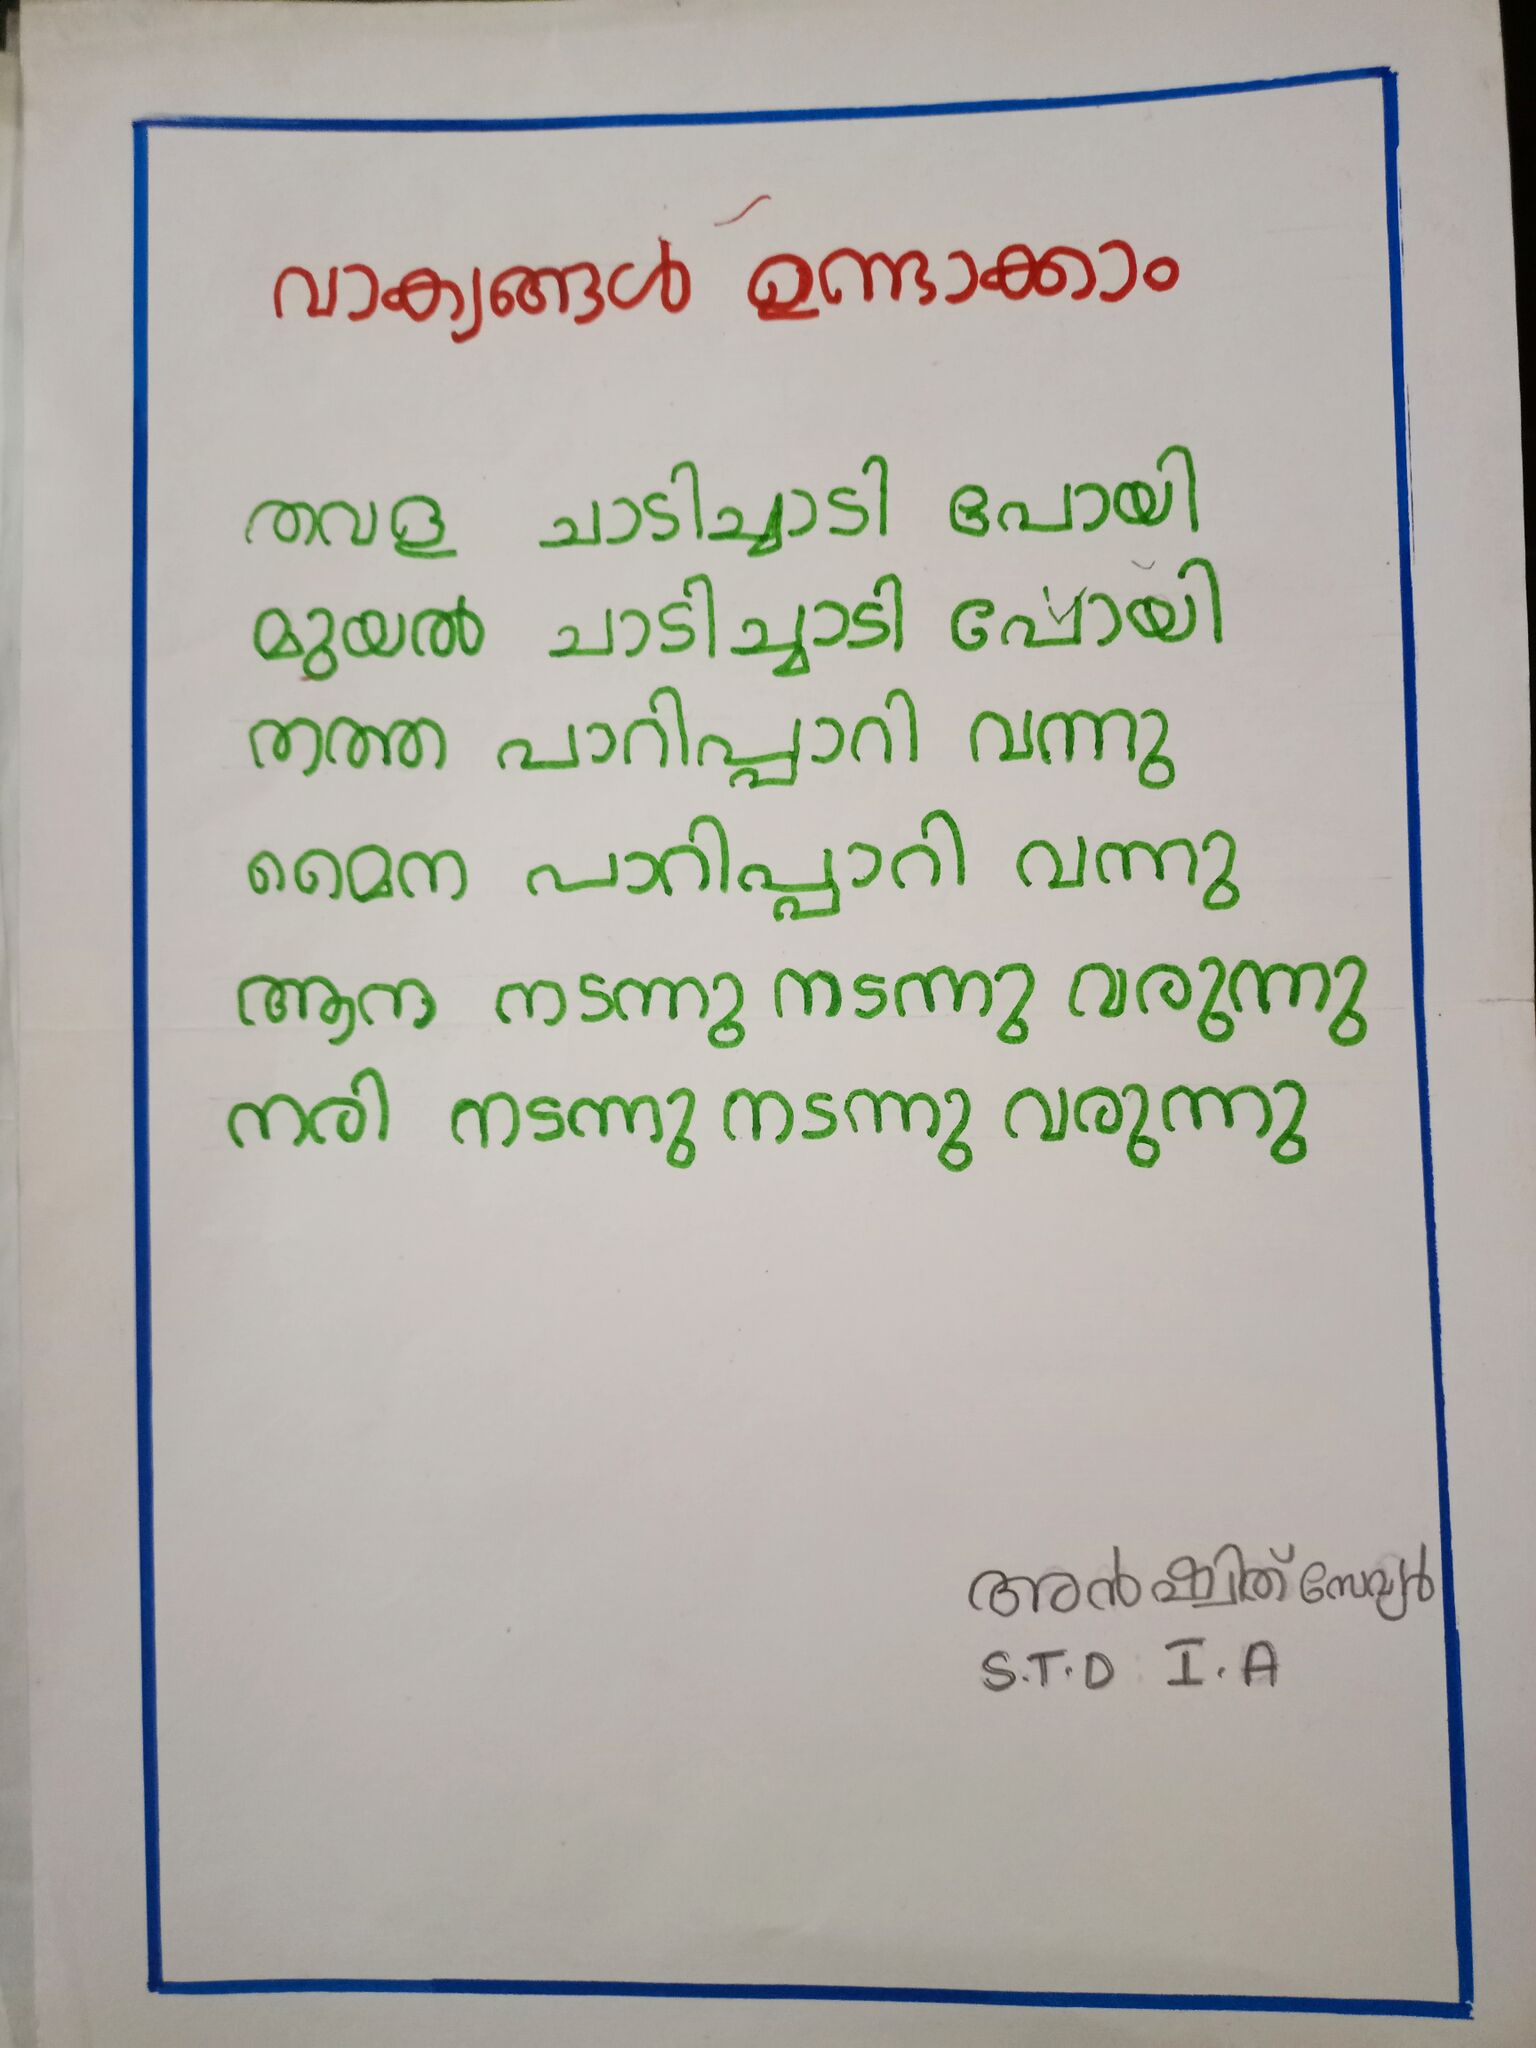 വാക്യങ്ങൾ ഉണ്ടാക്കാം
തവള ചാടിച്ചാടി പോയി
മുയൽ ചാടിച്ചാടി പോയി
തത്ത പാറിപ്പാറി വന്നു
മൈന പാറിപ്പാറി വന്നു
ആന നടന്നു നടന്നു വരുന്നു
നരി നടന്നു നടന്നു വരുന്നു
സേവ്യർ
S.T.D I.A